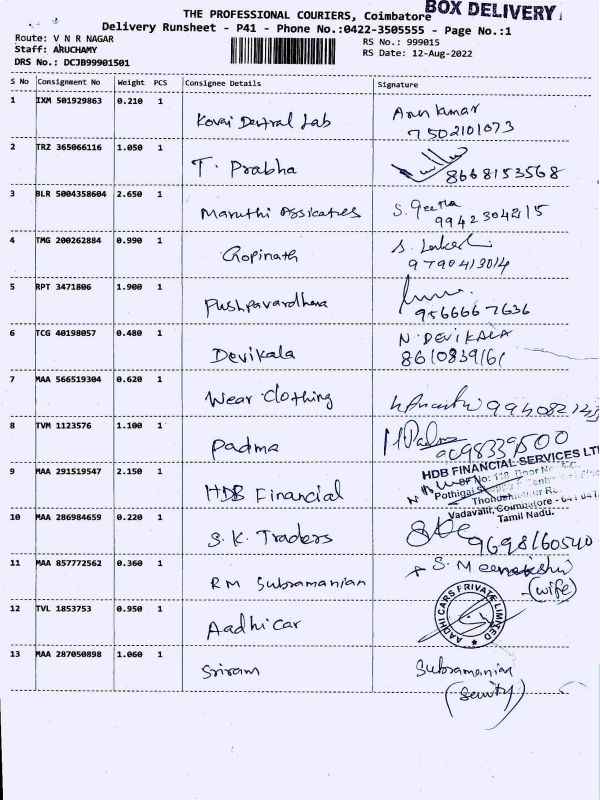 THE PROFESSIONAL COURIERS, Coimbatore
BOX DELIVERY
Delivery Runsheet - P41 - Phone No.:0422-3505555 - Page No.:1
Route: V N R NAGAR
RS No.: 999015
Staff: ARUCHAMY
RS Date: 12-Aug-2022
DRS No.: DCJB99901501
S No Consignment No Weight PCS Consignee Details Signature
1 IXM 501929863 0.210 1 Kovai Dental Lab Arun kumar
7502101073
2 TRZ 365066116 1.050 1 T. Prabha 8668153568
3 BLR 5004358604 2.650 1 Maruthi Assicates S. Geetha
9942304215
4 TMG 200262884 0.990 1 Gopinath S.
9790413014
5 RPT 3471806 1.900 1 Pushpavardhana
9566667636
6 TCG 40198057 0.480 1 Devikala N. DEVIKALA
8610839161
7 MAA 566519304 0.620 1 Wear clothing
8 TVM 1123576 1.100 1 Padma Padma
9 MAA 291519547 2.150 1 HDB Financial HDB FINANCIAL SERVICES LT
Pothigai
Vadavalli, Coimbatore
Tamil Nadu.
10 MAA 286984659 0.220 1 S.K. Traders
9698160540
11 MAA 857772562 0.360 1 RM Subramanian S. Meenakshi
(wife)
12 TVL 1853753 0.950 1 Aadhi Car AADHI CARS PRIVATE LIMITED
13 MAA 287050898 1.060 1 Sriram Subramanian